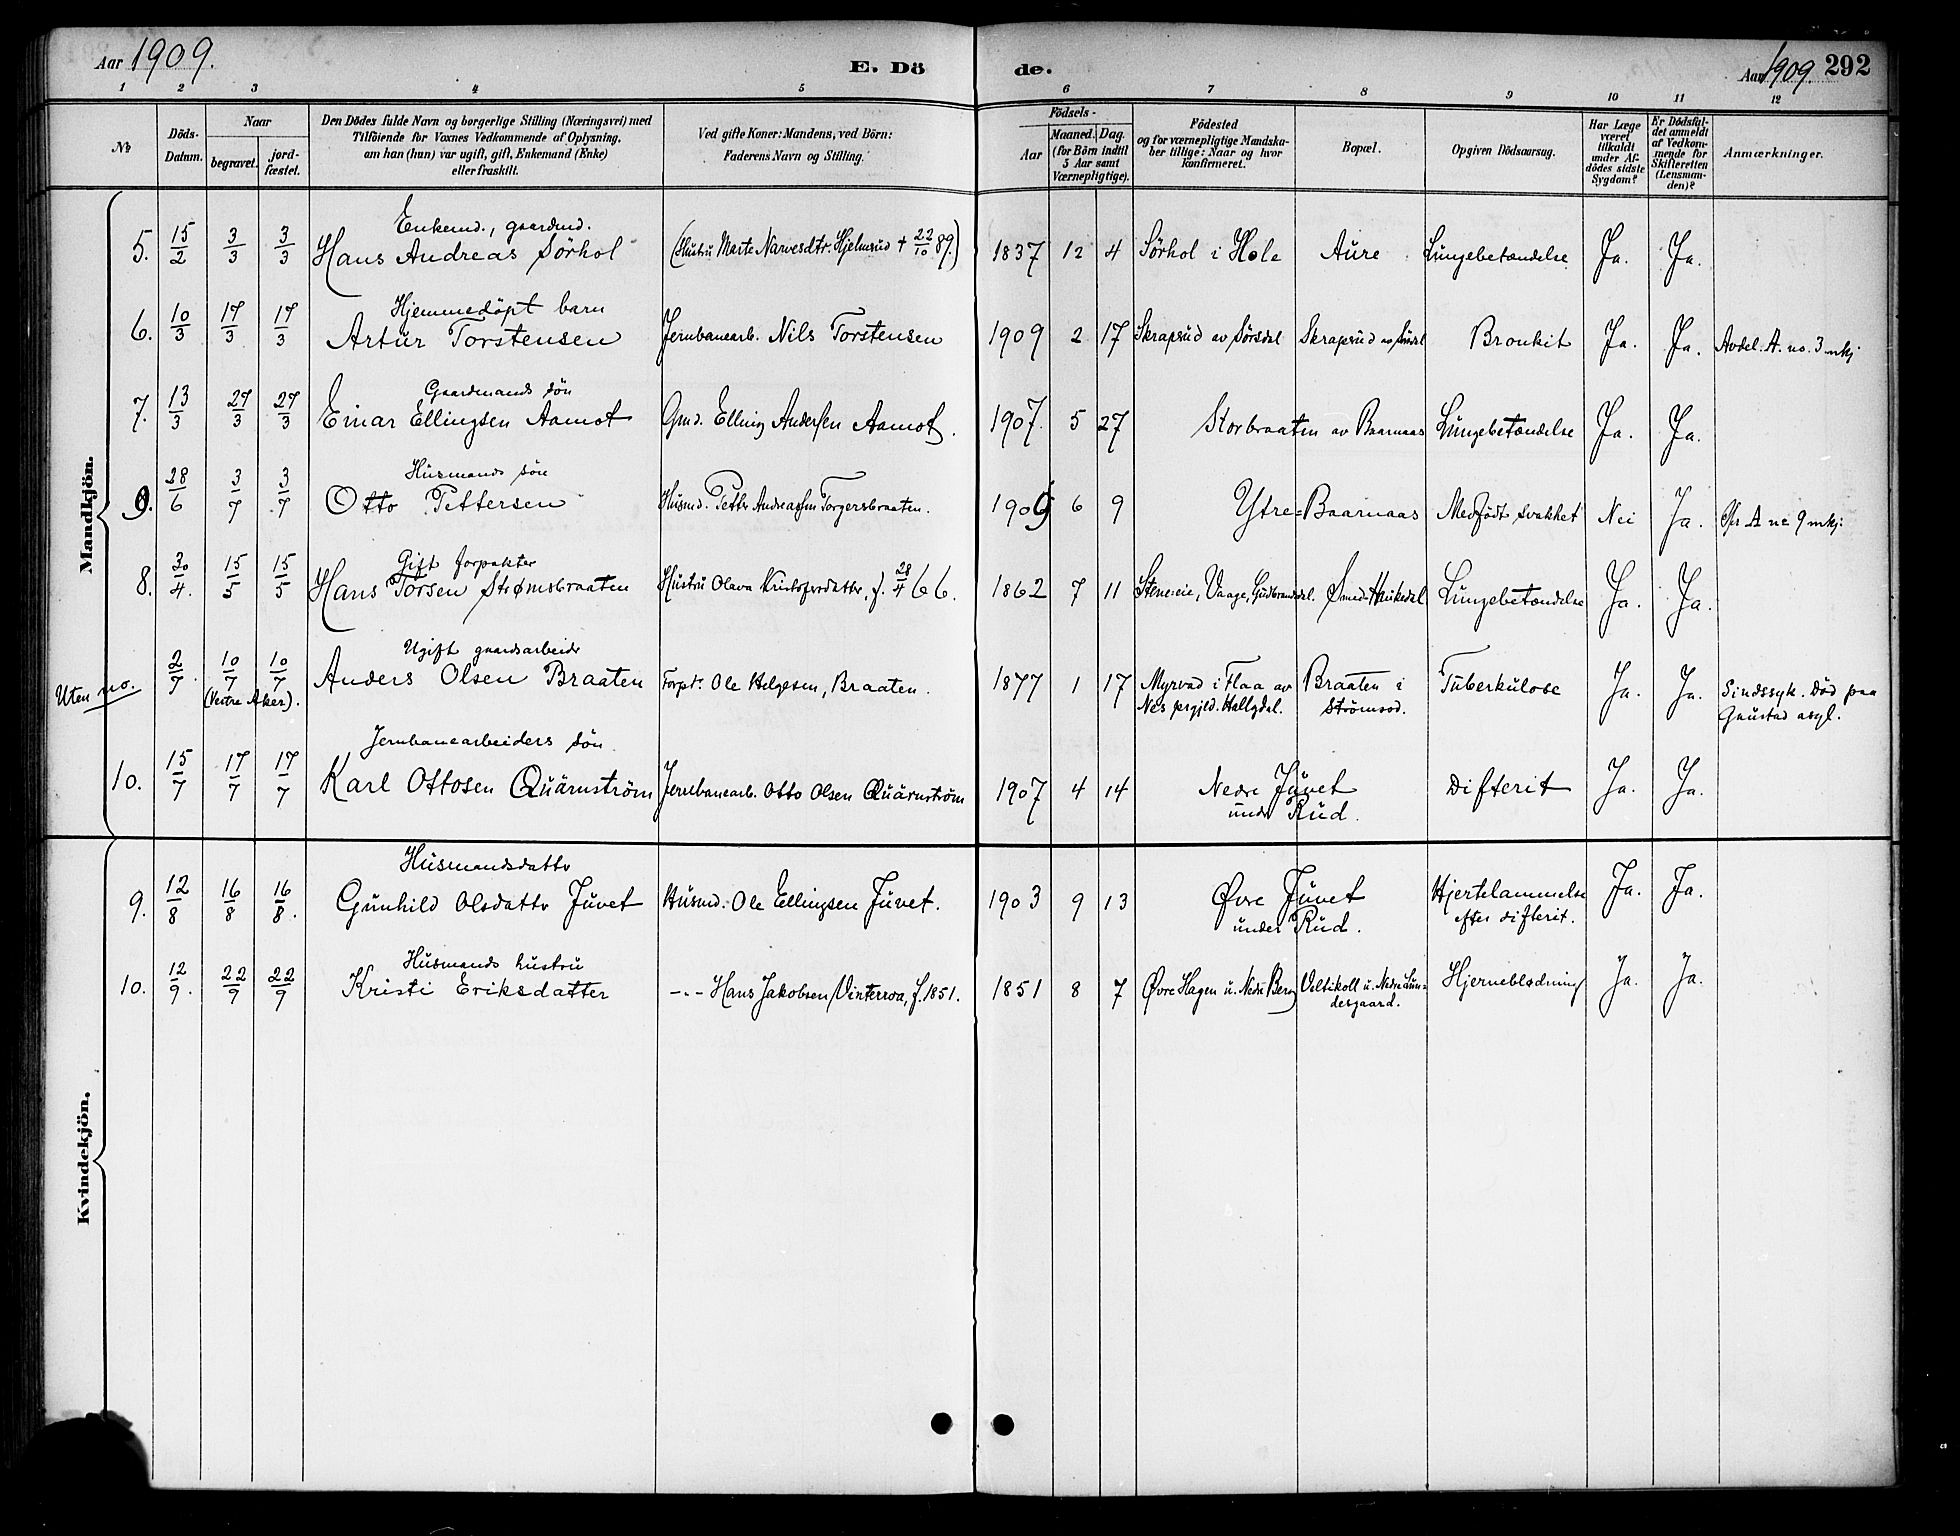 Aar 1909.
E. Dö
de.
Aar 1909. 292
1 2 3 4 5 6 7 8 9 10 11 12
№
Döds-
Datum.
Naar
begravet.
jord-
fæstet.
Den Dödes fulde Navn og borgerlige Stilling (Næringsvei) med
Tilföiende for Voxnes Vedkommende af Oplysning,
om han (hun) var ugift, gift, Enkemand (Enke)
eller fraskilt.
Ved gifte Koner: Mandens, ved Börn:
Faderens Navn og Stilling.
Födsels-
Aar
Maaned. Dag.
(for Börn indtil
5 Aar samt
Værnepligtige).
Födested
og for værnepligtige Mandska-
ber tillige: Naar og hvor
konfirmeret.
Bopæl.
Opgiven Dödsaarsag.
Har Læge
været
tilkaldt
under Af-
dödes sidste
Sygdom?
Er Dödsfal-
det anmeldt
af Vedkom-
mende for
Skifteretten
(Lensman-
den)?
Anmærkninger.
Mandkjön.
Enkemd., gaardmd.
5. 15/2 3/3 3/3 Hans Andreas Sörhol (Hustru Marte Narvesdtr. Hjelmsrud + 22/10 89.) 1837 12 4 Sörhol i Hole Aure Lungebetændelse Ja. Ja.
Hjemmedöpt barn
6. 10/3 17/3 17/3 Artur Torstensen Jernbanearb. Nils Torstensen 1909 2 17 Skrapsrud av Sørsdal Skrapsrud av Sørsdal Bronkit Ja. Ja. Avdel. A. no. 3 mkj
Gaardmands sön
7. 13/3 27/3 27/3 Einar Ellingsen Aamot Gmd. Elling Andersen Aamot. 1907. 5 27 Storbraaten av Baarnaas Lungebetændelse Ja. Ja.
Husmands sön
9. 28/6 3/7 3/7 Otto Pettersen Husmd. Petter Andreassen Torgersbraaten. 1909 6 9 Ytre=Baarnaas Medfödt svakhet Nei Ja. Cfr A no 9 mkj:
Gift forpakter
8. 30/4. 15/5 15/5 Hans Torsen Strømsbraaten Hustru Olava Kristofersdatter, f. 28/4 66. 1862 7 11 Steneeie, Vaage, Gudbrandsdal. Ømd-Haukedal Lungebetændelse Ja. Ja.
Ugift gaardsarbeider
Uten no. 2/7. 10/7 10/7 Anders Olsen Braaten Forptr. Ole Helgesen, Braaten. 1877 1 17 Myrvad i Flaa av Braaten i Tuberkulose Ja. Ja. Sindssyk. Död paa
(Vestre Aker). Nes prgjld. Hallgdal. Strømsod. Gaustad asyl.
Jernbanearbeiders sön
10. 15/7 17/7 17/7 Karl Ottosen Quärnström Jernbanearb. Otto Olsen Quärnström 1907 4 14 Nedre Juvet Difterit Ja. Ja.
under Rud.
Kvindekjön.
Husmandsdatter
9. 12/8 16/8 16/8. Gunhild Olsdatter Juvet Husmd. Ole Ellingsen Juvet. 1903 9 13 Øvre Juvet Hjertelammelse Ja. Ja.
under Rud. efter difterit.
Husmands hustru
10. 12/9. 22/9 22/9 Kristi Eriksdatter -"- Hans Jakobsen Vinterroa, f. 1851. 1851 8 7 Øvre Hagen u. Nedre Berg Veltikoll u. Nedre Lun= Hjerneblødning Ja. Ja.
desgaard.